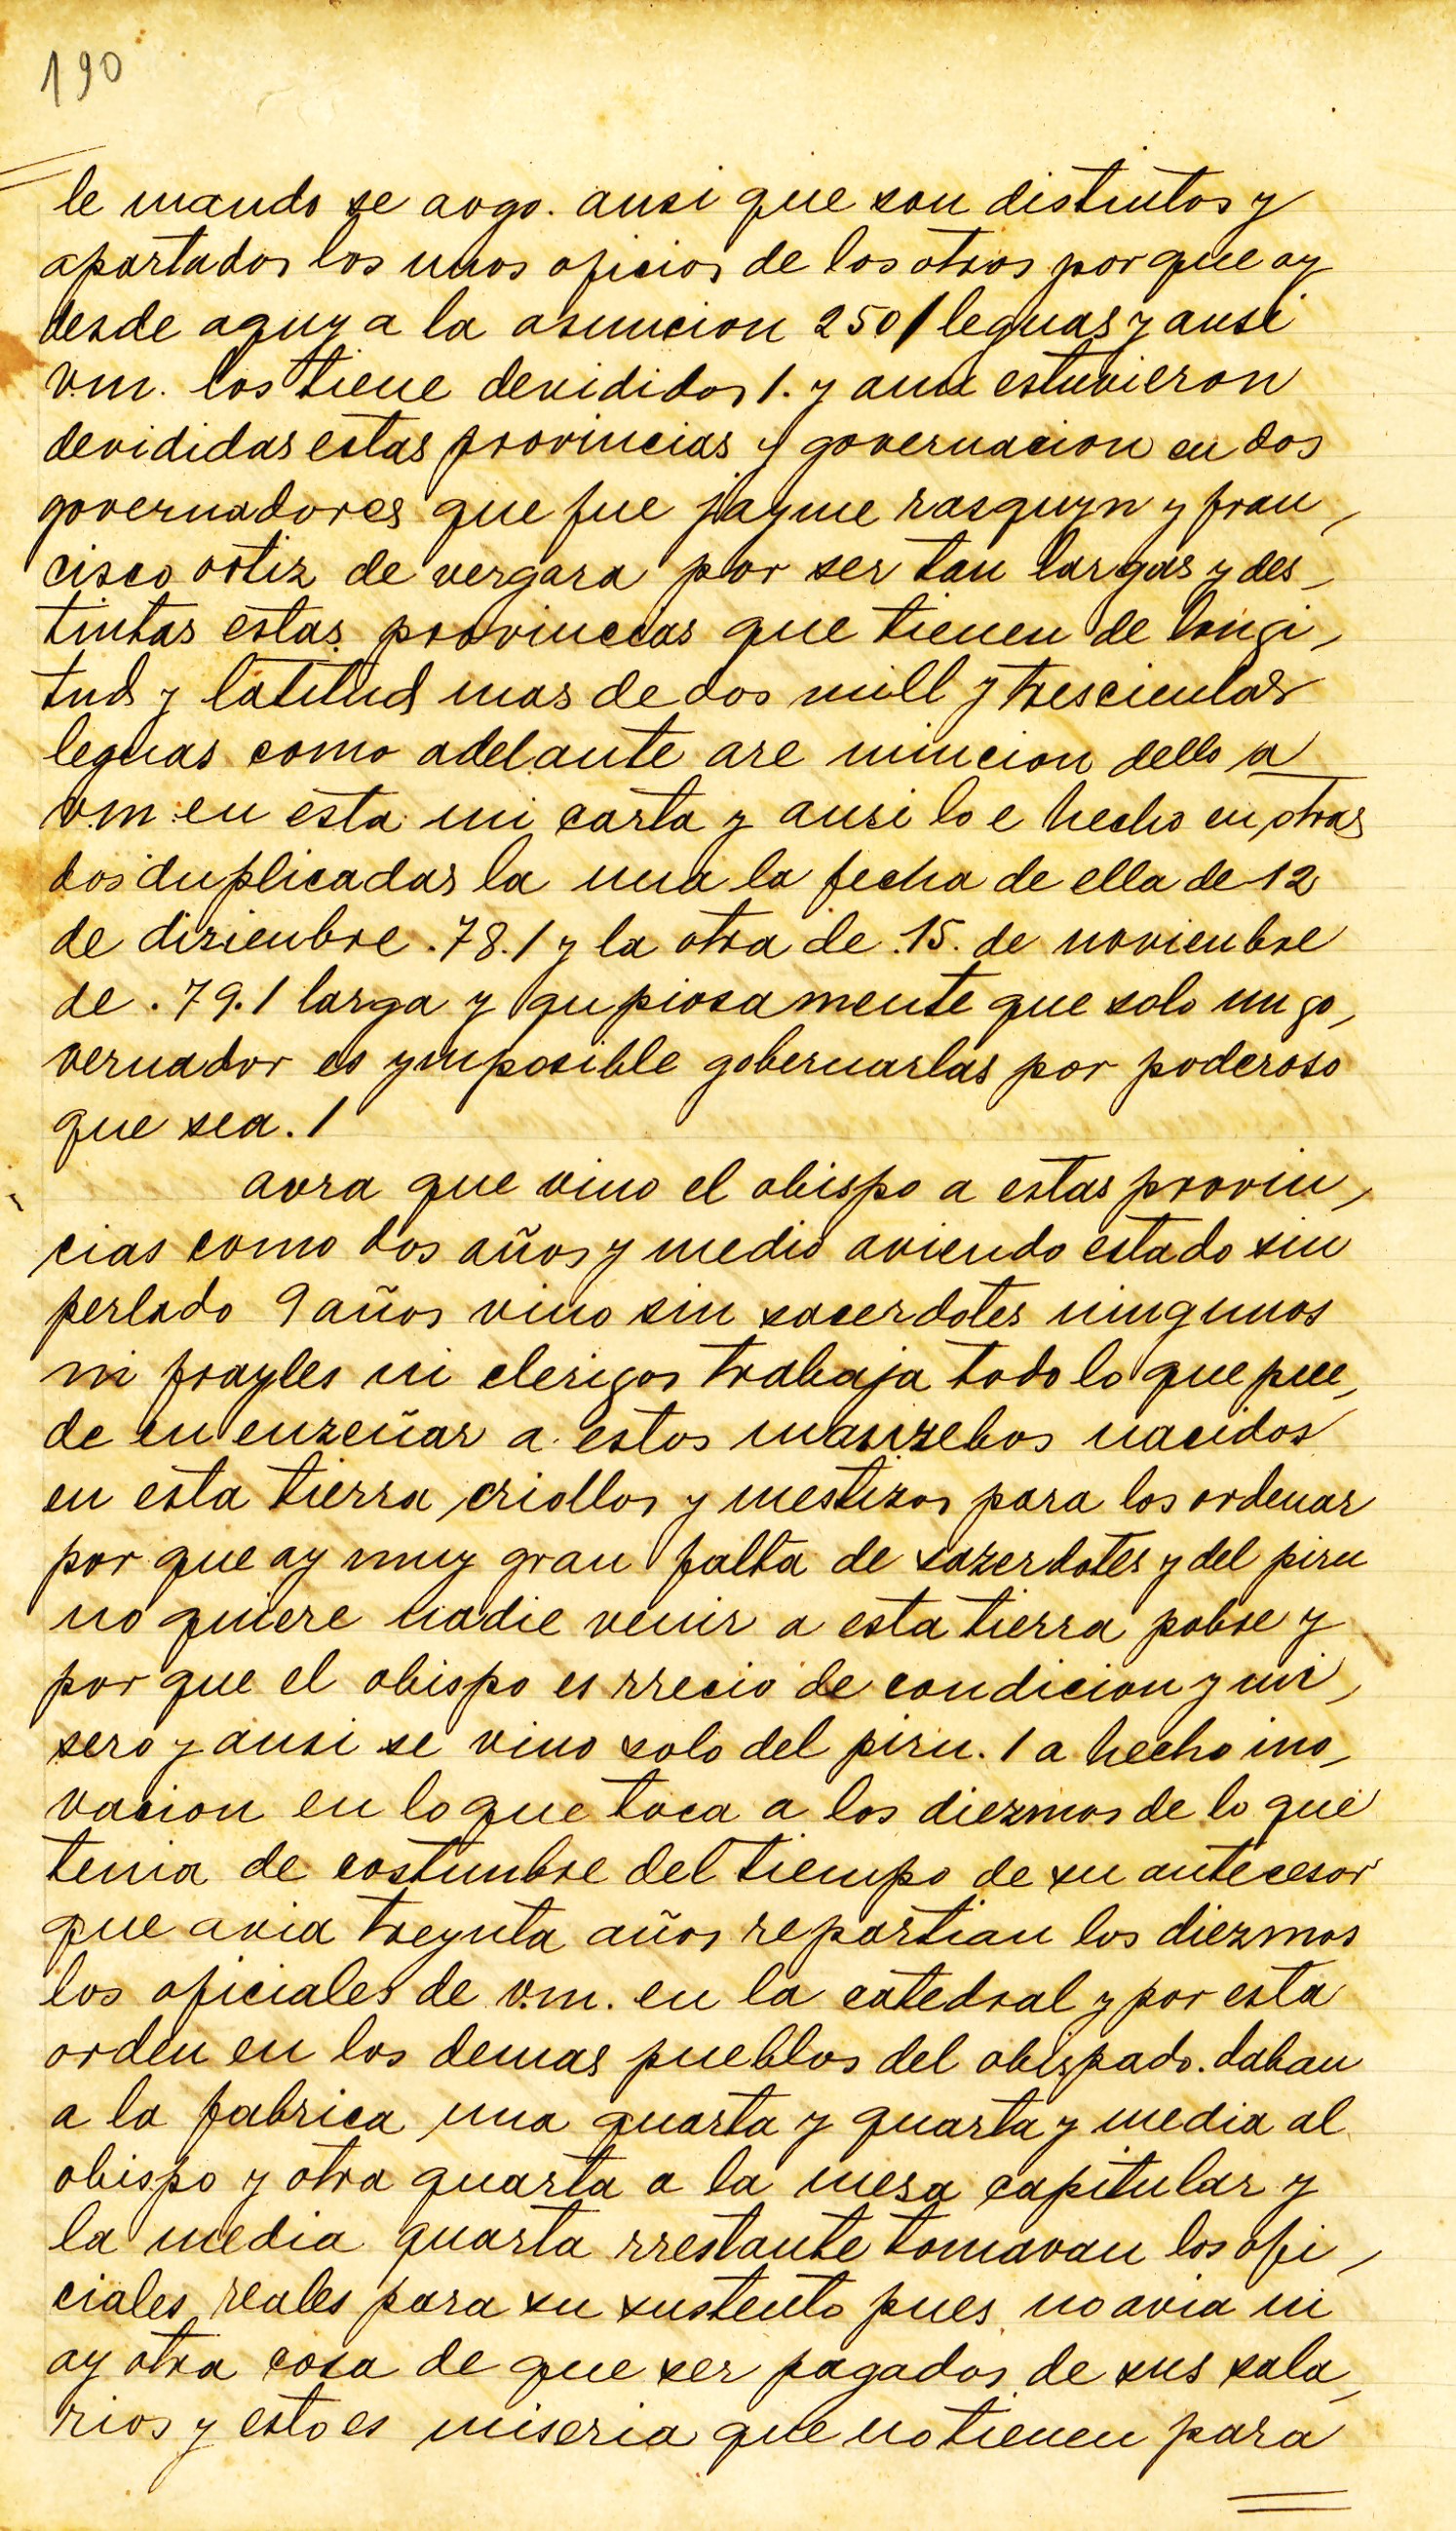 190
le mando se aogo. ansi que son distintos y
apartados los unos oficios de los otros porque ay
desde aquy a la asuncion 250/ leguas y ansi
v.m. los tiene devididos/. y aun estuvieron
devididas estas provincias y governacion en dos
governadores que fue jayme rasquyn y fran,
cisco ortiz de vergara por ser tan largas y des,
tintas estas provincias que tienen de longi,
tud y latitud mas de dos mill y trescientas
leguas como adelante are mincion dello a
v.m. en esta mi carta y ansi lo e hecho en otras
dos duplicadas la una la fecha de ella de 12
de dizienbre .78./ y la otra de .15. de novienbre
de .79./ larga y qupiosamente que solo un go,
vernador es ymposible gobernarlas por poderoso
que sea./
aora que vino el obispo a estas provin,
cias como dos años y medio aviendo estado sin
perlado 9 años vino sin sacerdotes ningunos
ni frayles ni clerigos trabaja todo lo que pue,
de en enzeñar a estos manzebos nacidos
en esta tierra criollos y mestizos para los ordenar
por que ay muy gran falta de sazerdotes y del piru
no quiere nadie venir a esta tierra pobre y
por que el obispo es rrecio de condicion y mi,
sero y ansi se vino solo del piru./ a hecho ino,
vacion en lo que toca a los diezmos de lo que
tenia de costunbre del tienpo de su antecesor
que avia treynta años repartian los diezmos
los oficiales de v.m. en la catedral y por esta
orden en los demas pueblos del obispado. daban
a la fabrica una quarta y quarta y media al
obispo y otra quarta a la mesa capitular y
la media quarta rrestante tomavan los ofi,
ciales reales para su sustento pues no avia ni
ay otra cosa de que ser pagados de sus sala,
rios y esto es miseria que no tienen para